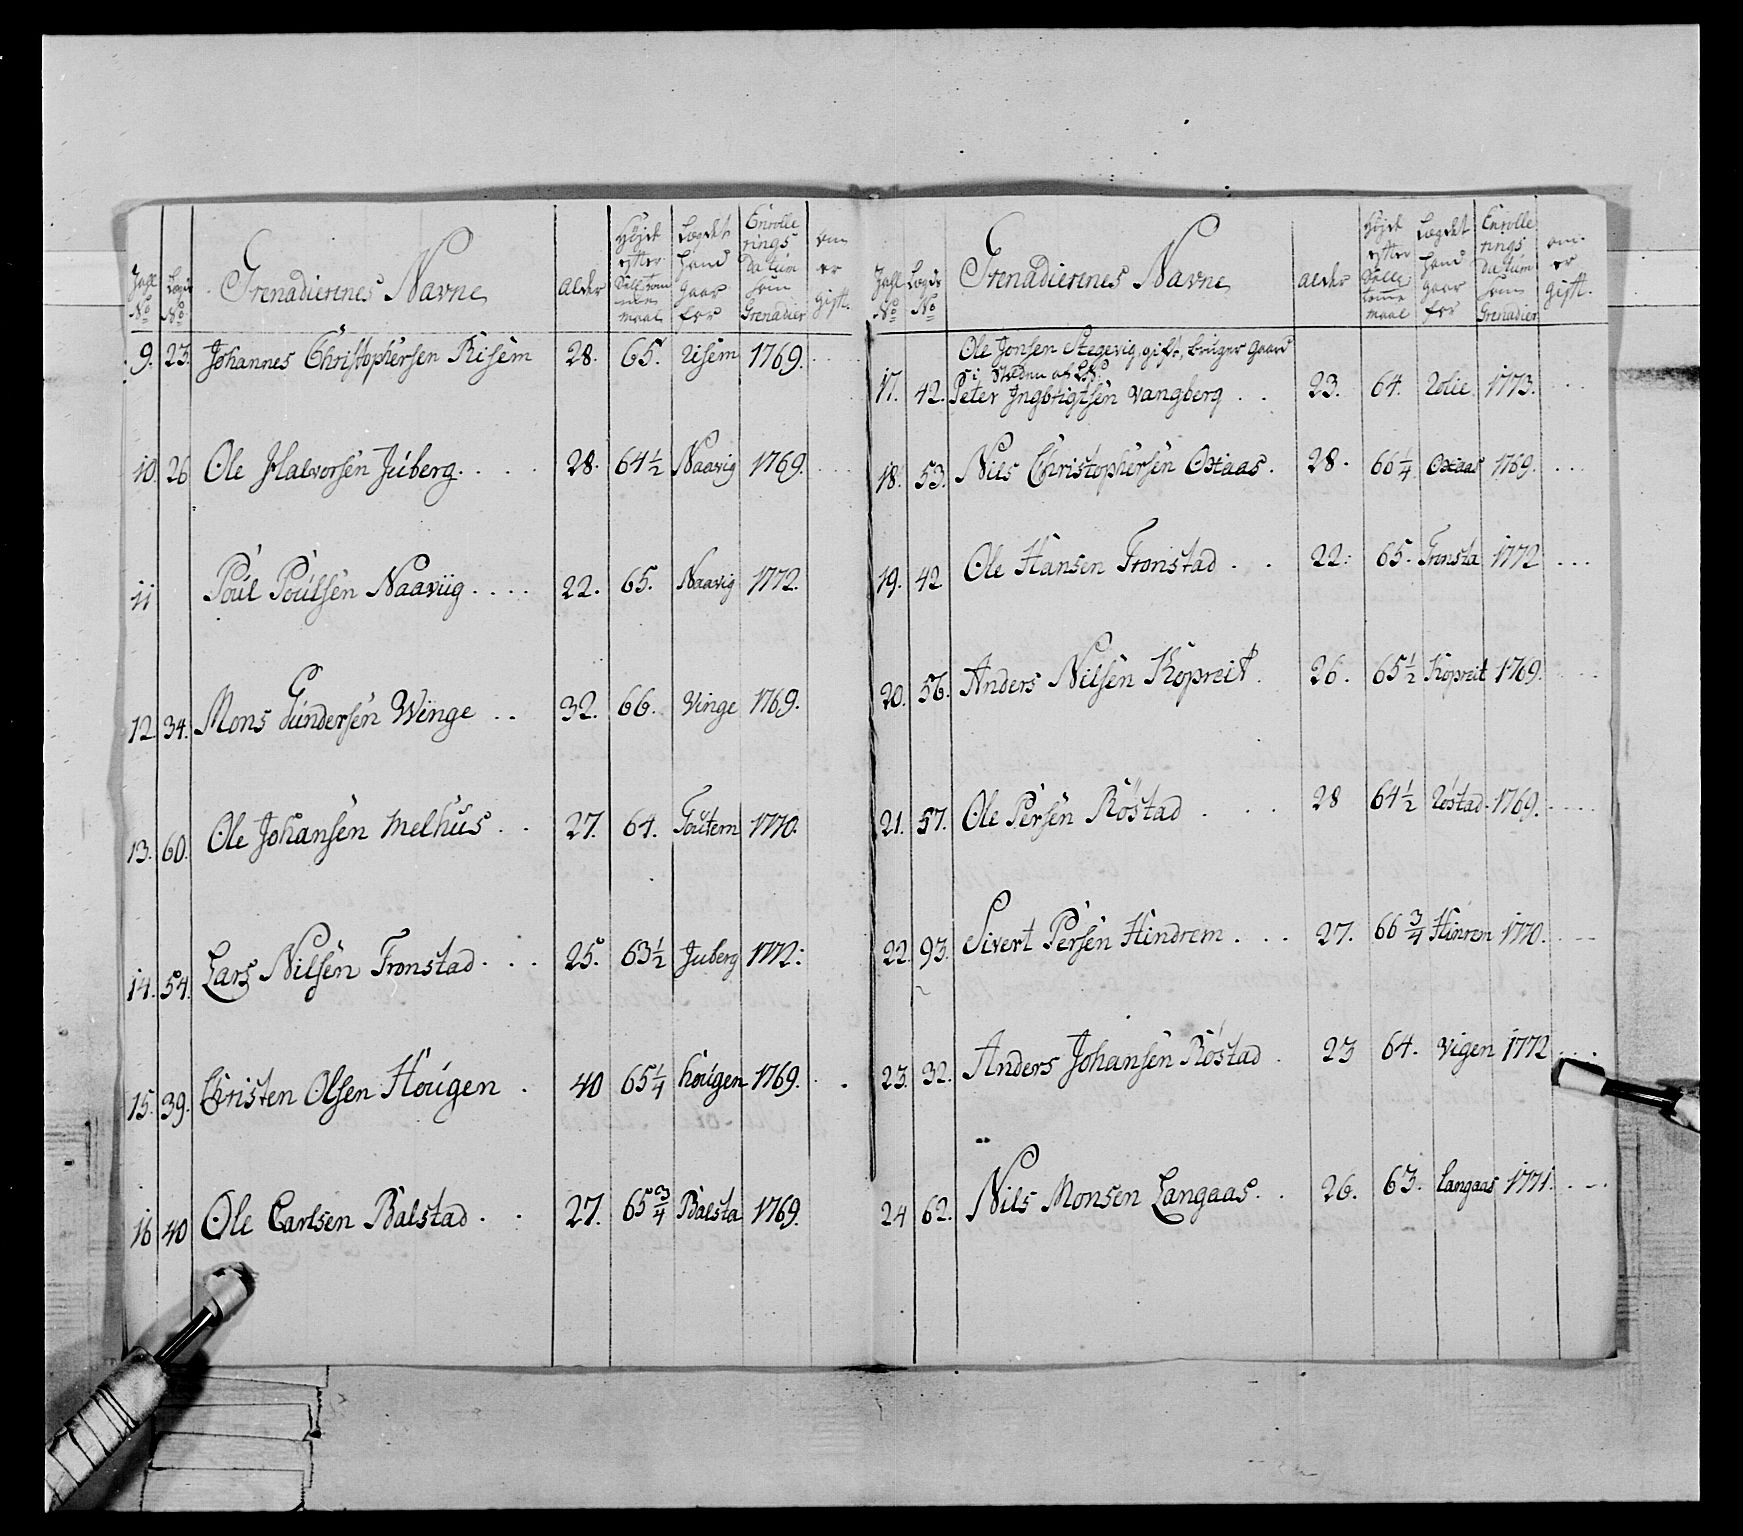 Grenadierenes Navne
Alder
Höjde
efter
maal
Lægdet
hand
gaar
for
Enrolle
rings
Datum
som
Grenadier
om
er
gift.
9. 23. Johannes Christophersen Risem 28. 65. Risem 1769.
10. 26 Ole Halvorsen Juberg 28. 64½ Naavig 1769.
11 Poul Poulsen Naaviig 22. 65. Naavig 1772.
12 34. Mons Gundersen Winge 32. 66. Vinge 1769.
13. 60. Ole Johansen Melhus 27. 64. 1770.
14. 54. Lars Nilsen Tronstad 25. 63½ Juberg 1772.
15. 39. Christen Olsen Hougen 40 65¼ hougen 1769.
16 40 Ole Carlsen Balstad 27. 65¾ Balsta 1769.
Grenadierenes Navne
Alder
Höjde
efter
maal
Lægdet
hand
gaar
for
Enrolle
rings
Datum
som
Grenadier
om
er
gift.
Ole Jonsen Stegevig, gift, bruger Gaard
i Steden
17. 42. Peter Ingbrigtsen Vangberg 23. 64. 1773.
18. 53. Nils Christophersen Oxaas 28. 66¼ Oxaas 1769.
19. 42 Ole Hansen Tronstad 22. 65. Tronsta 1772
20. 56. Anders Nilsen Kopreit 26. 65½ Kopreit 1769.
21. 57. Ole Persen Röstad 28 64½ Röstad 1769.
22. 93. Sivert Persen Hindrem 27. 66¾ Hinrem 1770.
23. 32. Anders Johansen Röstad 23 64. Vigen 1772
24 62. Nils Monsen Langaas 26. 63. Langaas 1771.